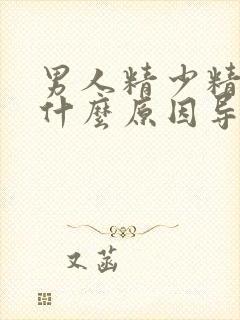 男人精少精
什麼原因导
又菡